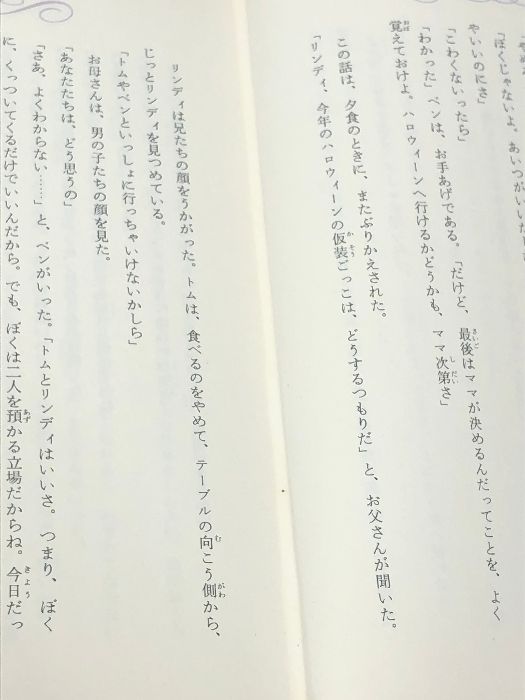 「ぼくじゃないよ。あいつがいいだ
やいいのにさ」
「こわくないったら」
「わかった」ベンは、お手あげである。「だけど、最後はママが決めるんだってことを、よく
覚えておけよ。ハロウィーンへ行けるかどうかも、ママ次第さ」
この話は、夕食のときに、またぶりかえされた。
「リンディ、今年のハロウィーンの仮装ごっこは、どうするつもりだ」と、お父さんが聞いた。
リンディは兄たちの顔をうかがった。トムは、食べるのをやめて、テーブルの向こう側から、
じっとリンディを見つめている。
「トムやベンといっしょに行っちゃいけないかしら」
お母さんは、男の子たちの顔を見た。
「あなたたちは、どう思うの」
「さあ、よくわからない……」と、ベンがいった。「トムとリンディはいいさ。つまり、ぼく
に、くっついてくるだけでいいんだから。でも、ぼくは二人を預かる立場だからね。今日だっ